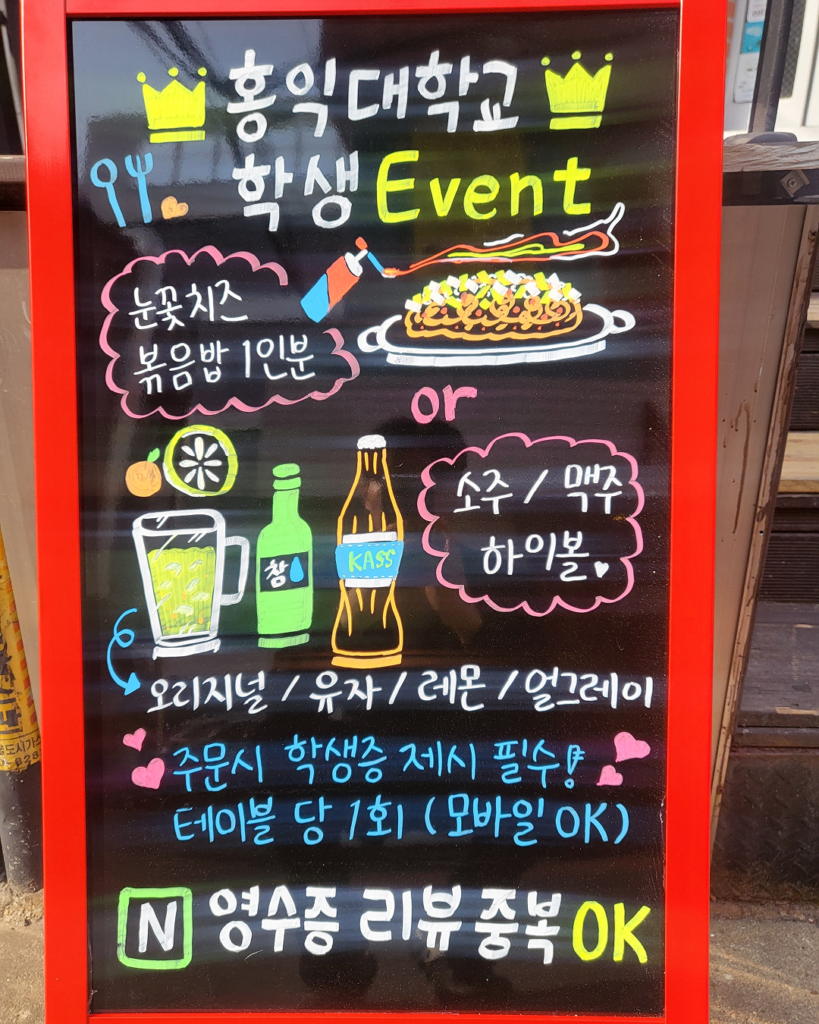 홍익대학교
학생 Event
눈꽃치즈
볶음밥 1인분
or
소주 / 맥주
하이볼
참
KASS
오리지널 / 유자 / 레몬 / 얼그레이
주문시 학생증 제시 필수!
테이블 당 1회 (모바일 OK)
N 영수증 리뷰 중복 OK